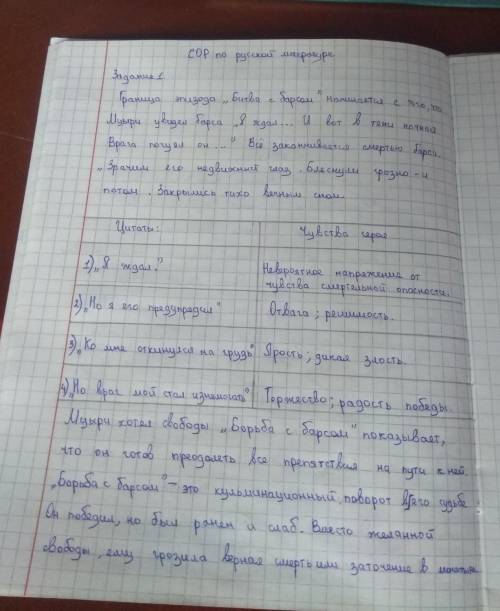 СОР по русской литературе
Задание 1.
Граница эпизода „Битва с барсом" начинается с того, что
Мцыри увидел барса „Я ждал... И вот в тени ночной
Врага почуял он ..." Всё заканчивается смертью барса.
„Зрачки его недвижный глаз. Блеснули грозно – и
потом. Закрылись тихо вечным сном.
Цитаты: Чувства героя
1) „Я ждал." Невероятное напряжение от
чувства смертельной опасности.
2) „Но я его предупредил" Отвага; решимость.
3) „Ко мне он кинулся на грудь" Ярость; дикая злость.
4) „Но враг мой стал изнемогать" Торжество; радость победы.
Мцыри хотел свободы „Борьба с барсом" показывает,
что он готов преодолеть все препятствия на пути к ней.
„Борьба с барсом" – это кульминационный поворот в его судьбе
Он победил, но был ранен и слаб. Вместо желанной
свободы, ему грозила верная смерть или заточение в